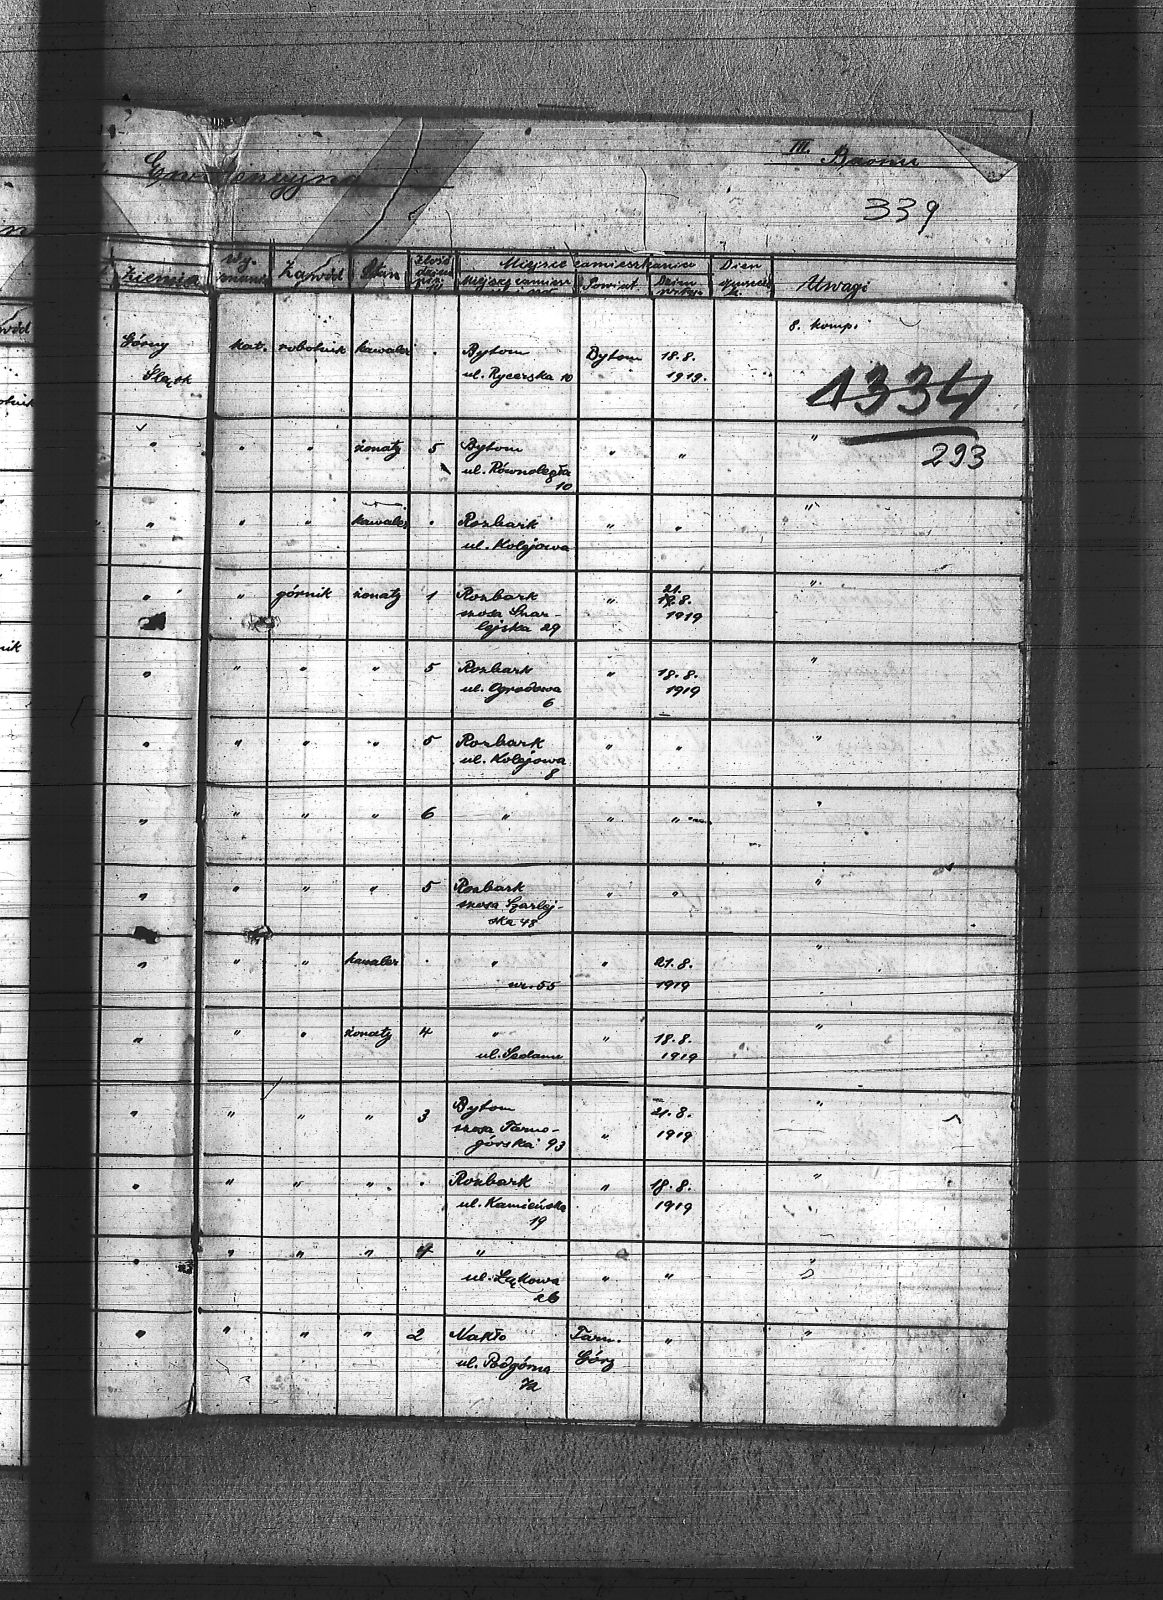 III. Baonu
Ewidencyjna
339
Ziemia Wy-znanie Zawód Stan Ilość dzieci Miejsce zamieszkania Powiat Dzień Dzień Uwagi
8. komp.
Górny Śląsk kat. robotnik kawaler . Bytom Bytom 18.8.
ul. Rycerska 10 1919.
1334
293
" " " żonaty 5 Bytom " " "
ul. Równoległa
10
" " " kawaler . Rozbark " " "
ul. Kolejowa
" " górnik żonaty 1 Rozbark " 21. "
szosa Szar- 18.8.
lejska 29 1919
" " " " 5 Rozbark " 18.8. "
ul. Ogrodowa 1919
6
" " " " 5 Rozbark " " "
ul. Kolejowa
8
" " " " 6 " " " "
" " " " 5 Rozbark " " "
szosa Szarlej-
ska 48
" " " kawaler . " " 21.8. "
nr. 55 1919
" " " żonaty 4 " " 18.8. "
ul. Sedanu 1919
" " " " 3 Bytom " 21.8. "
szosa Tarno- 1919
górska 93
" " " " . Rozbark " 18.8. "
ul. Kamieńska 1919
19
" " " " 4 " " " "
ul. Łąkowa
26
" " " " 2 Nakło Tarn. " "
ul. Podgórna Góry
72